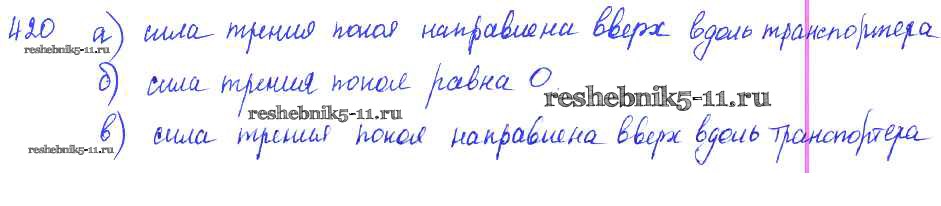 420 а) сила трения покоя направлена вверх вдоль транспортера
reshebnik5-11.ru
б) сила трения покоя равна 0
reshebnik5-11.ru
reshebnik5-11.ru
в) сила трения покоя направлена вверх вдоль транспортера
reshebnik5-11.ru